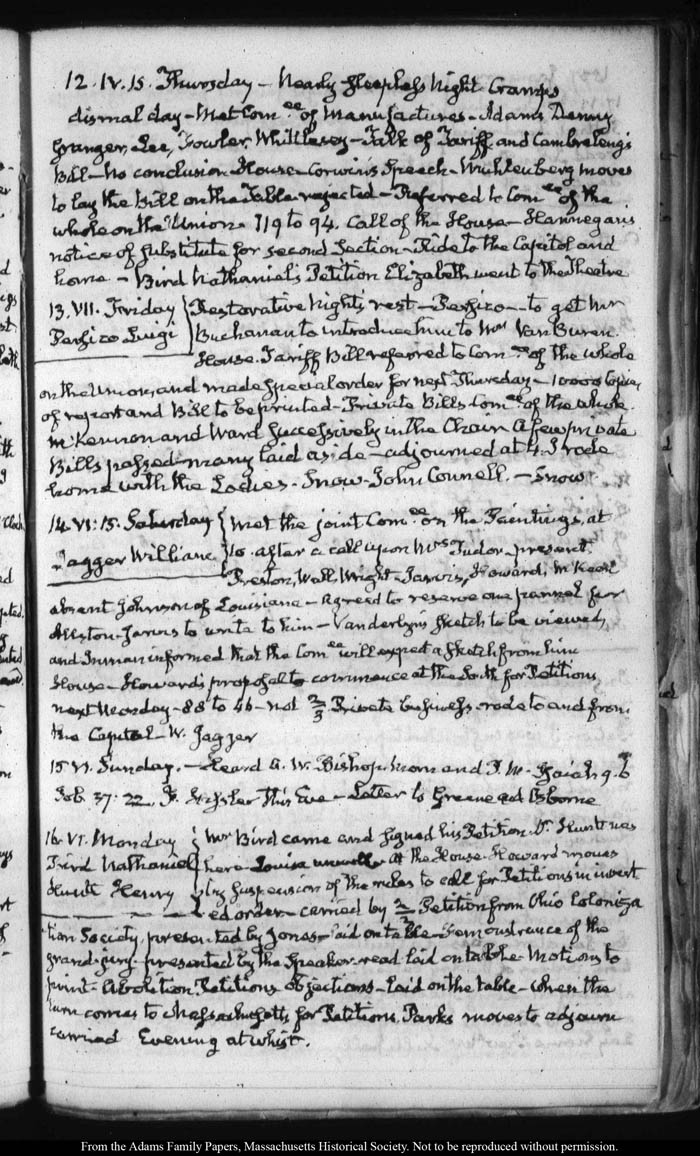 12. IV.15. Thursday – Nearly sleepless Night Cramps
dismal day – Met Com.ee of Manufactures – Adams, Denny
Granger, Lee, Fowler, Whittlesey – Talk of Tariff and Cambreleng's
Bill – No conclusion House – Corwin's Speech – Muhlenberg moves
to lay the Bill on the Table rejected – Referred to Com.ee of the
whole on the Union. 119 to 94. Call of the House – Hannegan's
notice of substitute for second Section – Ride to the Capitol and
home – Bird Nathaniel's Petition Elizabeth went to the Theatre
13. VII. Friday Restorative Night's rest – Persico – to get Mr
Persico Luigi Buchanan to introduce him to Mr Van Buren.
House. Tariff Bill referred to Com.ee of the whole
on the Union, and made special order for next Thursday – 10000 Copies
of report and Bill to be printed – Private Bills Com.ee of the whole.
McKennon and Ward successively in the Chair A few private
Bills passed many laid aside – adjourned at 4. I rode
home with the Ladies. Snow – John Connell. – Snow
14. VI:15. Saturday Met the joint Com.ee on the Paintings, at
Jagger William 10. after a call upon Mrs Tudor – present
Preston, Wall, Wright – Jarvis, Howard, McKeon
absent Johnson of Louisiana – Agreed to reserve one pannel for
Allston – Jarvis to write to him – Vanderlyn's sketch to be viewed,
and Inman informed that the Com.ee will expect a sketch from him
House – Howard's proposal to commence at the South for Petitions
next Monday – 88 to 46 – not 2/3 Private business. rode to and from
the Capitol – W. Jagger
15 VI. Sunday. – Heard A. W. Bishop. morn and Isaiah 9. 6
Job. 37. 22. This Eve – Letter to Greene and Osborne
16. VI. Monday Mr Bird came and signed his Petition. Dr Hunt was
Bird Nathaniel here Louisa unwell At the House. Howard moves
Hunt Henry by suspension of the rules to call for Petitions in invert
ed order – carried by 2/3 Petition from Ohio Coloniza
tion Society, presented by Jones – laid on table – remonstrance of the
grand-jury. presented by the Speaker – read laid on table. Motions to
print – Abolition Petitions objections – laid on the table – when the
turn comes to Massachusetts for Petitions. Parks moves to adjourn
carried Evening at whist.
From the Adams Family Papers, Massachusetts Historical Society. Not to be reproduced without permission.